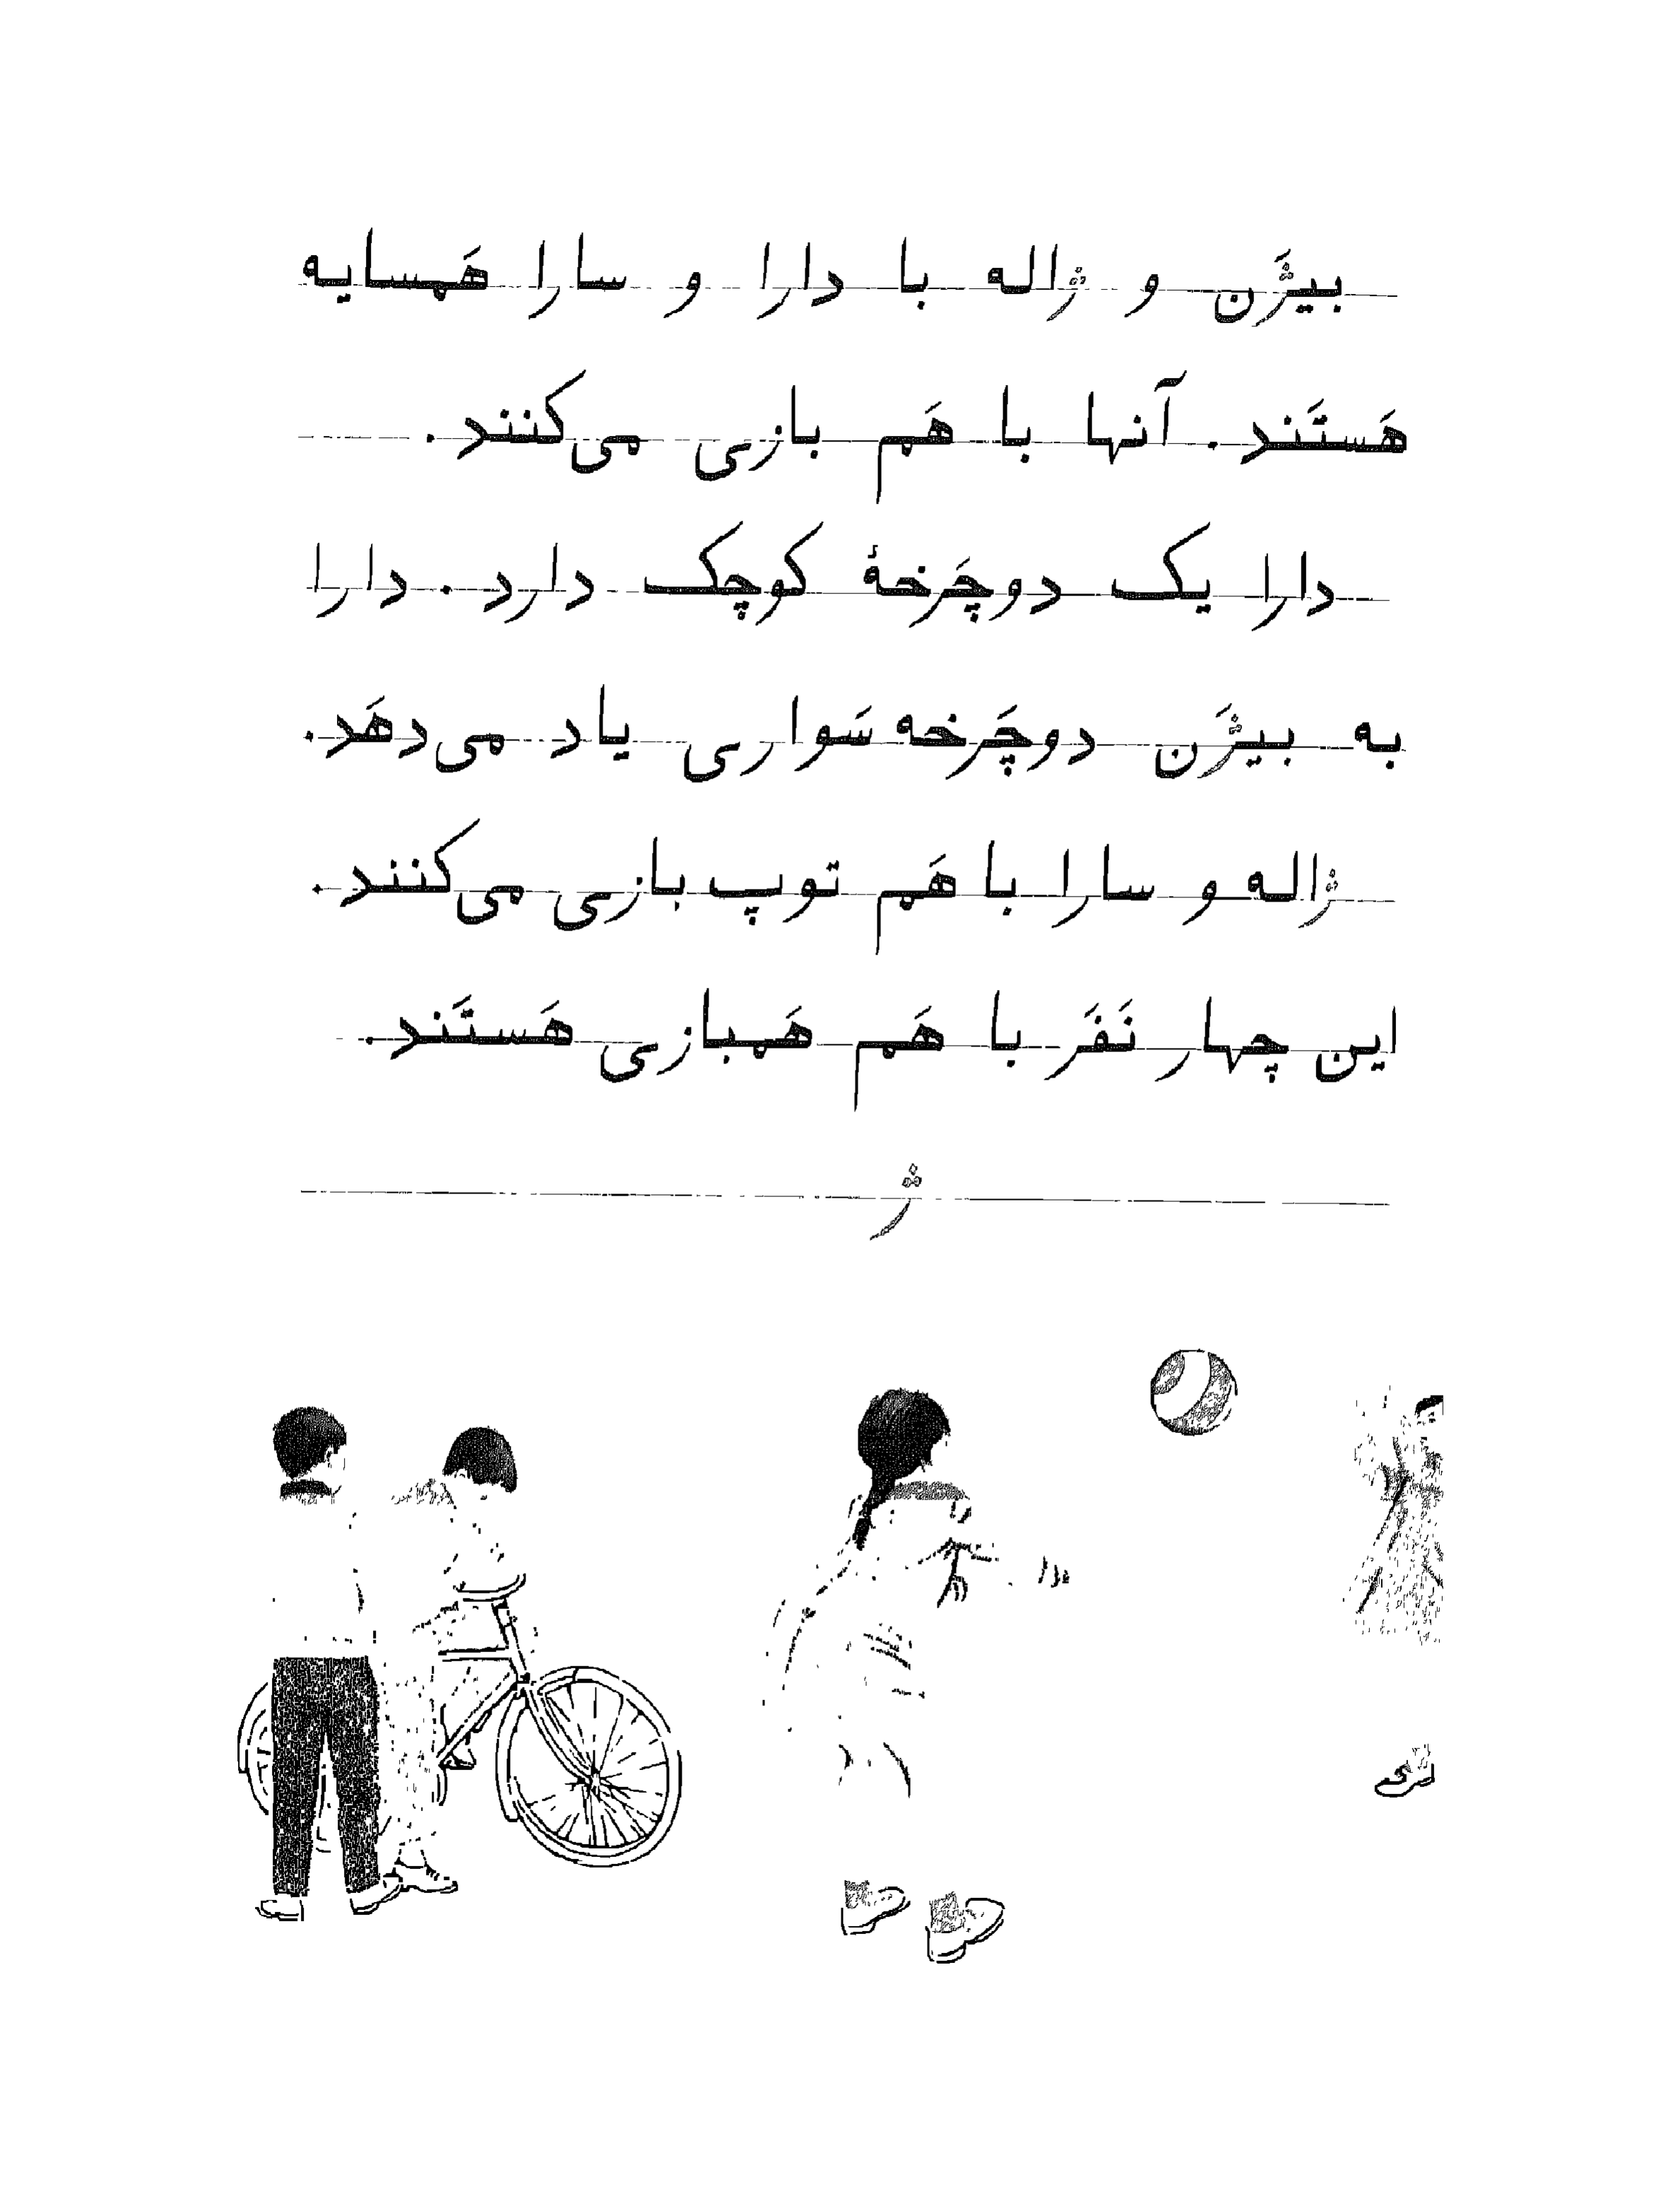 بیژَن و ژاله با دارا و سارا هَمسایه
هَستَند. آنها با هَم بازی می‌کنند.
دارا یک دوچَرخهٔ کوچک دارد. دارا
به بیژَن دوچَرخه سَواری یاد می‌دهَد.
ژاله و سارا با هَم توپ بازی می‌کنند.
این چهار نَفَر با هَم هَمبازی هَستَند.
ژ